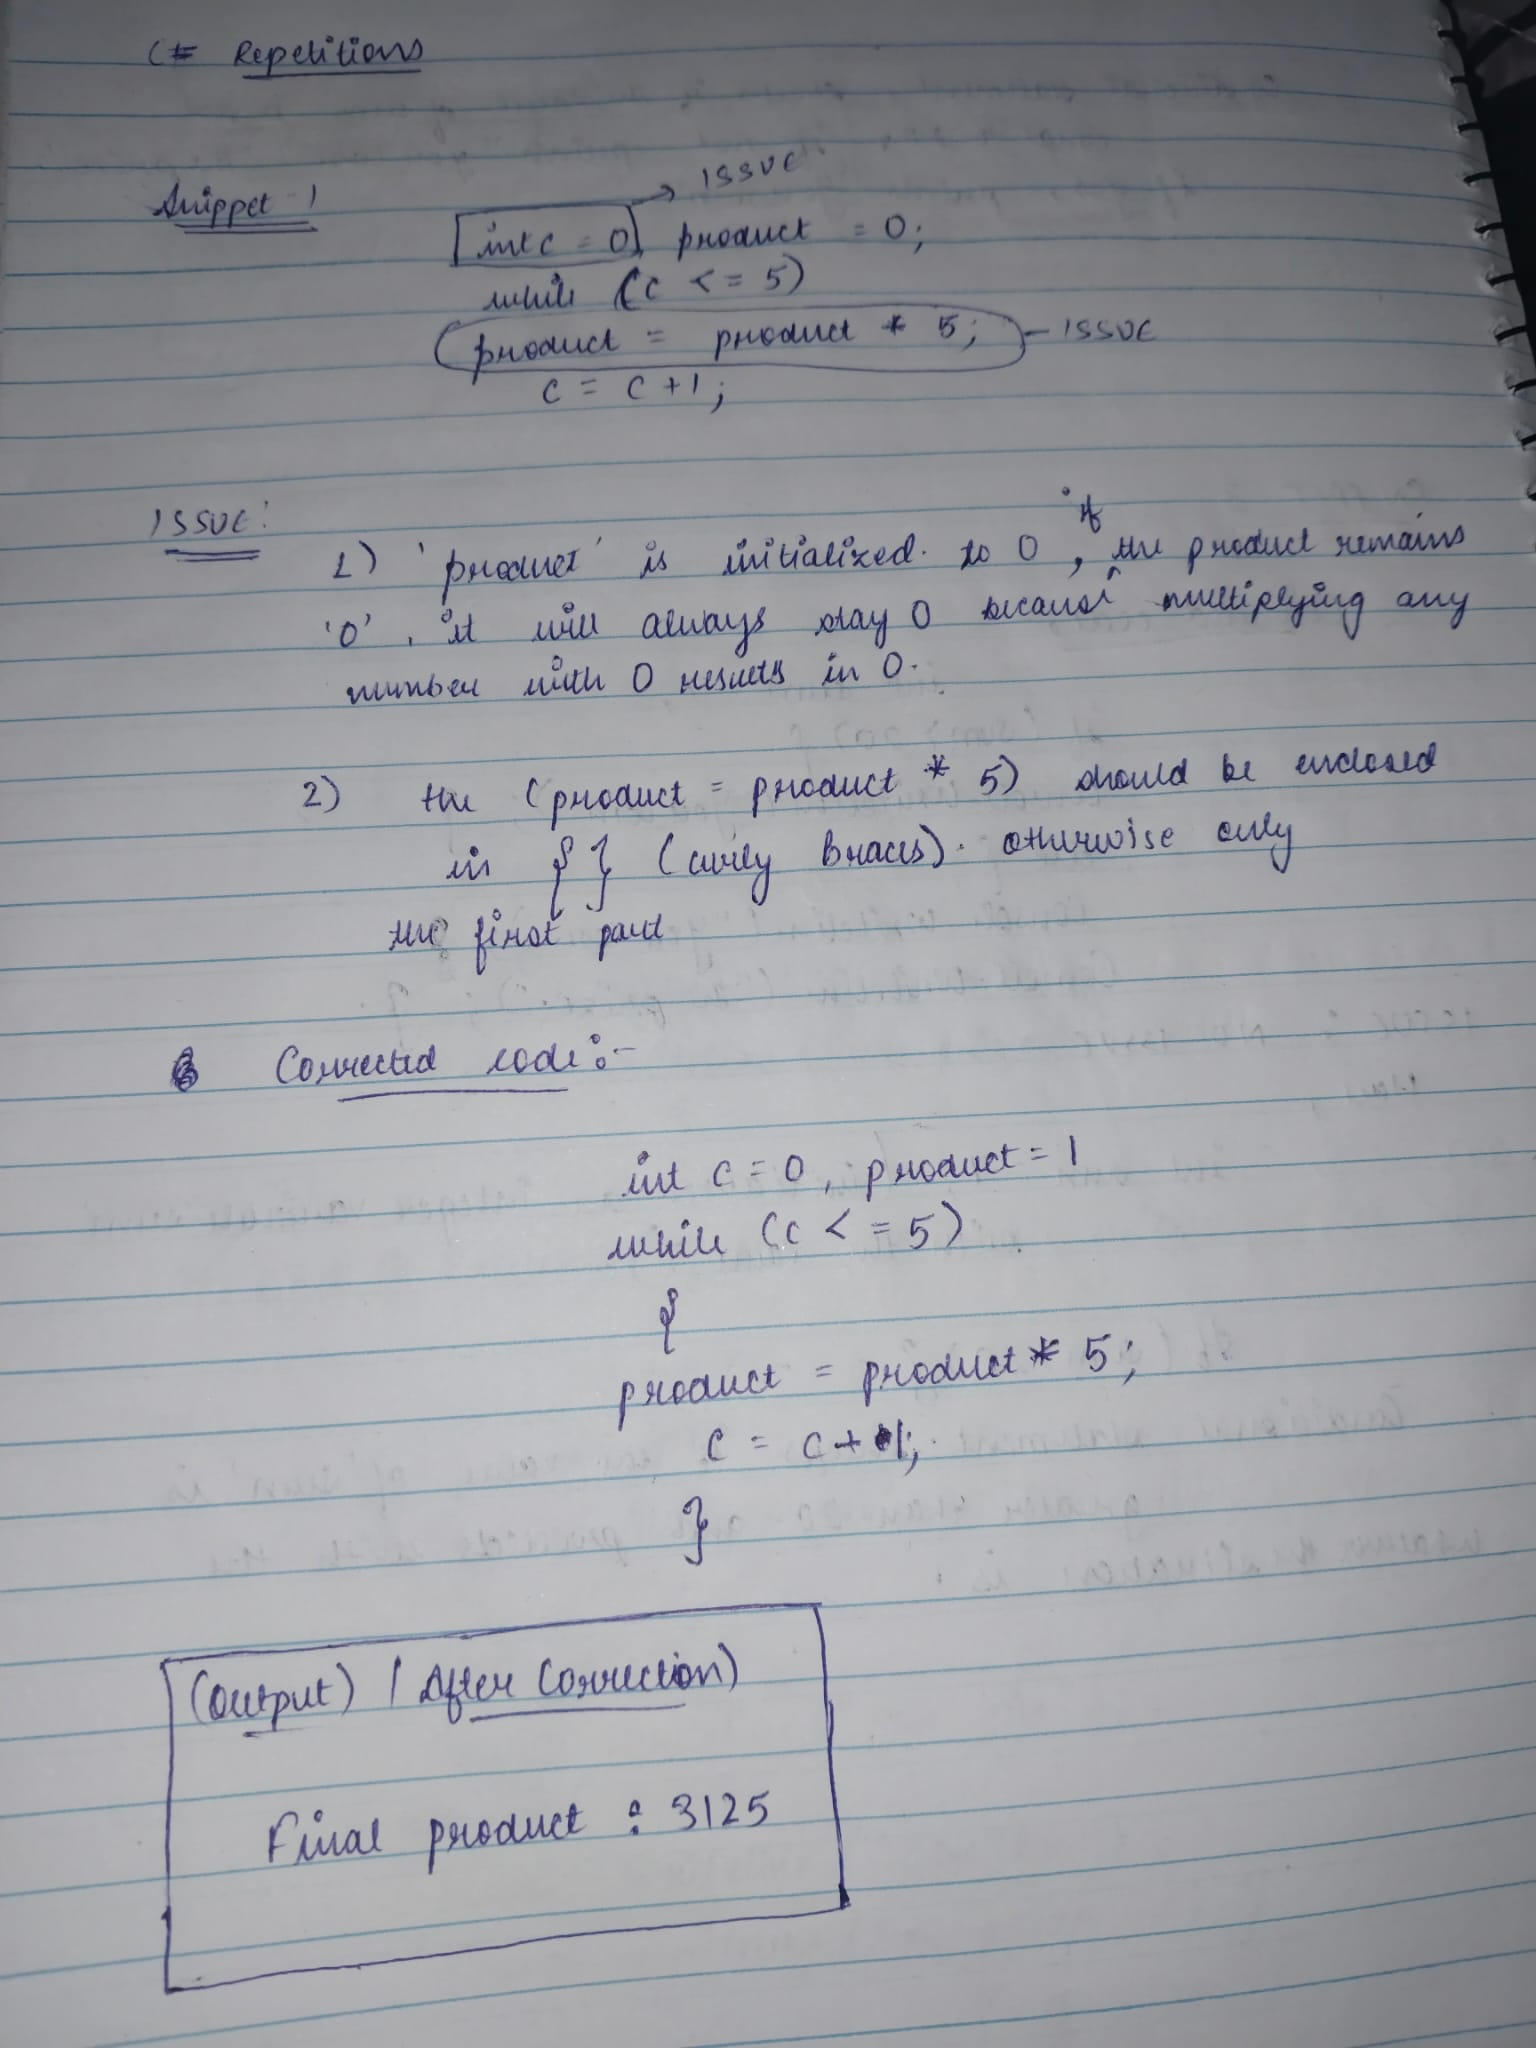 C# Repetitions
Snippet 1
→ ISSUE
int c = 0, product = 0;
while (c <= 5)
product = product * 5; - ISSUE
c = c+1;
ISSUE:
1) 'product' is initialized to 0, if the product remains
'0', it will always stay 0 because multiplying any
number with 0 results in 0.
2) the (product = product * 5) should be enclosed
in { } (curly Braces). otherwise only
the first part
Corrected code:-
int c = 0, product = 1
while (c <= 5)
{
product = product * 5;
c = c + 1;
}
(Output) / After Correction)
Final product : 3125